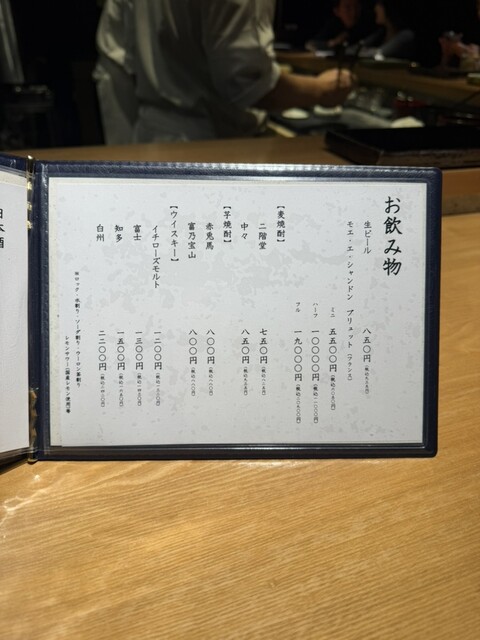 お飲み物
生ビール 八五〇円（税込九三五円）
モエ・エ・シャンドン ブリュット（フランス）
ミニ 五五〇〇円
ハーフ 一〇〇〇〇円（税込一一〇〇〇円）
フル 一九〇〇〇円（税込二〇九〇〇円）
【麦焼酎】
二階堂 七五〇円（税込八二五円）
中々 八五〇円
【芋焼酎】
赤兎馬 八〇〇円（税込八八〇円）
富乃宝山 八〇〇円（税込八八〇円）
【ウイスキー】
イチローズモルト 一二〇〇円（税込一三二〇円）
富士 一三〇〇円（税込一四三〇円）
知多 一五〇〇円（税込一六五〇円）
白州 二二〇〇円（税込二四二〇円）
※ロック・水割り・ソーダ割り・ウーロン茶割り
レモンサワー（国産レモン使用）等
日本酒